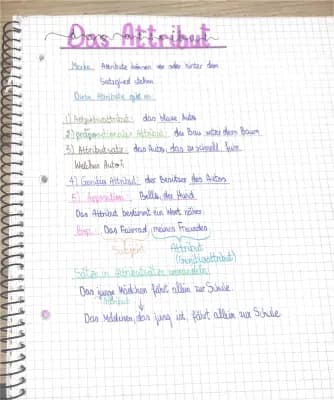 Das Attribut
Merke: Attribute können vor oder hinter dem
Satzglied stehen.
Diese Attribute gibt es:
1) Adjektivattribut: das blaue Auto
2) präpositionales Attribut: der Bau unter dem Baum
3) Attributsatz: das Auto, das so schnell fuhr
Welches Auto?
4) Genitiv Attribut: der Besitzer des Autos
5) Apposition: Bello, der Hund
Das Attribut bestimmt ein Wort näher.
Bsp.: Das Fahrrad meines Freundes
Subjekt Attribut
(Genitivattribut)
Sätze in Attributsätze umwandeln:
Das junge Mädchen fährt allein zur Schule.
Attribut
Das Mädchen, das jung ist, fährt allein zur Schule.